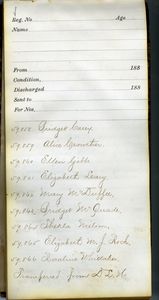 Reg. No. Age
Name
From 188
Condition,
Discharged 188
Sent to
For No.
59,158 Bridget Carey
59,159 Alice
59,160 Ellen Gibbs
59,161 Elizabeth Leary
59,162 Mary McDuffee
59,163 Bridget McQuade,
59,164 Nelson,
59,165 Elizabeth M. J. Roch,
59,166 Rosaline
Transferred from